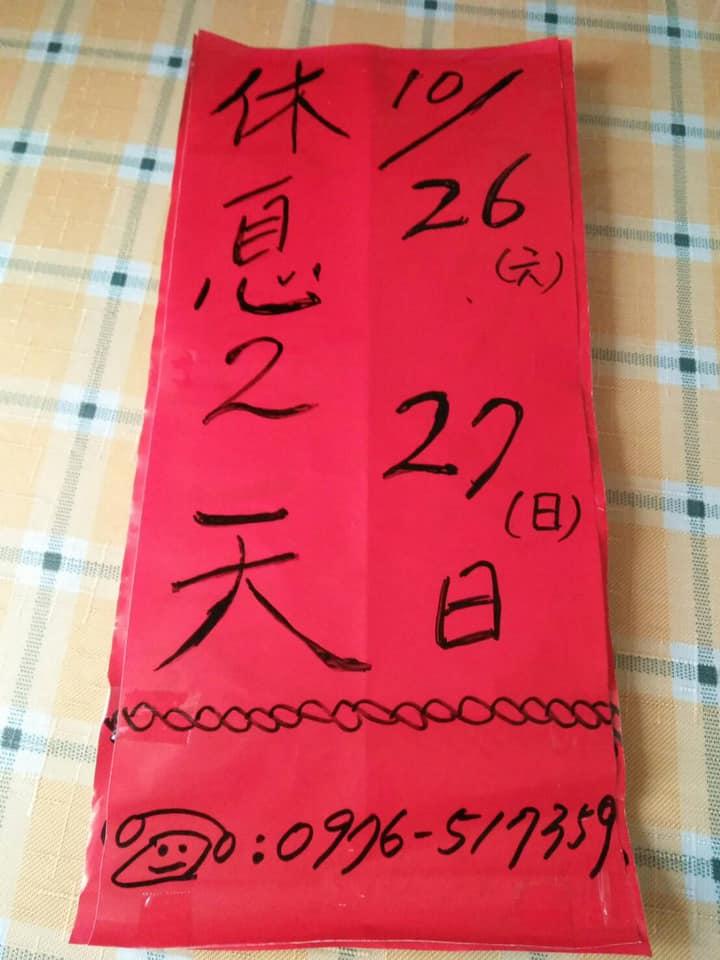 10/26(六)27(日)日
休息2天
:0976-517359